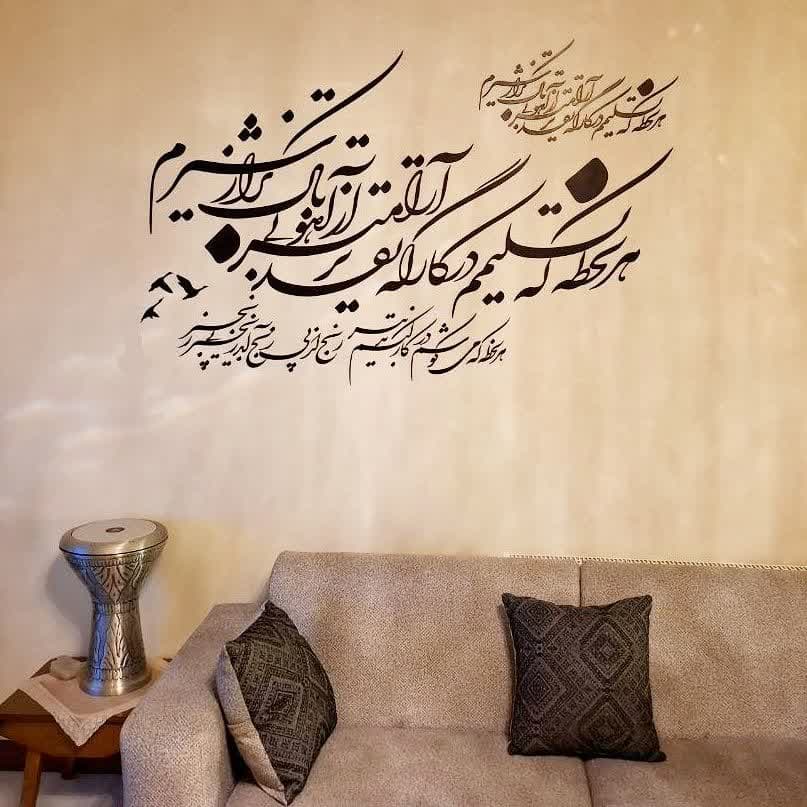 هر لحظه که تسلیمم در کارگه تقدیر
آرامتر از آهو بی باکتر از شیرم
هر لحظه که تسلیمم در کارگه تقدیر
آرامتر از آهو بی باکتر از شیرم
هر لحظه که می کوشم در کار کنم تدبیر
رنج از پی رنج آید زنجیر پی زنجیر